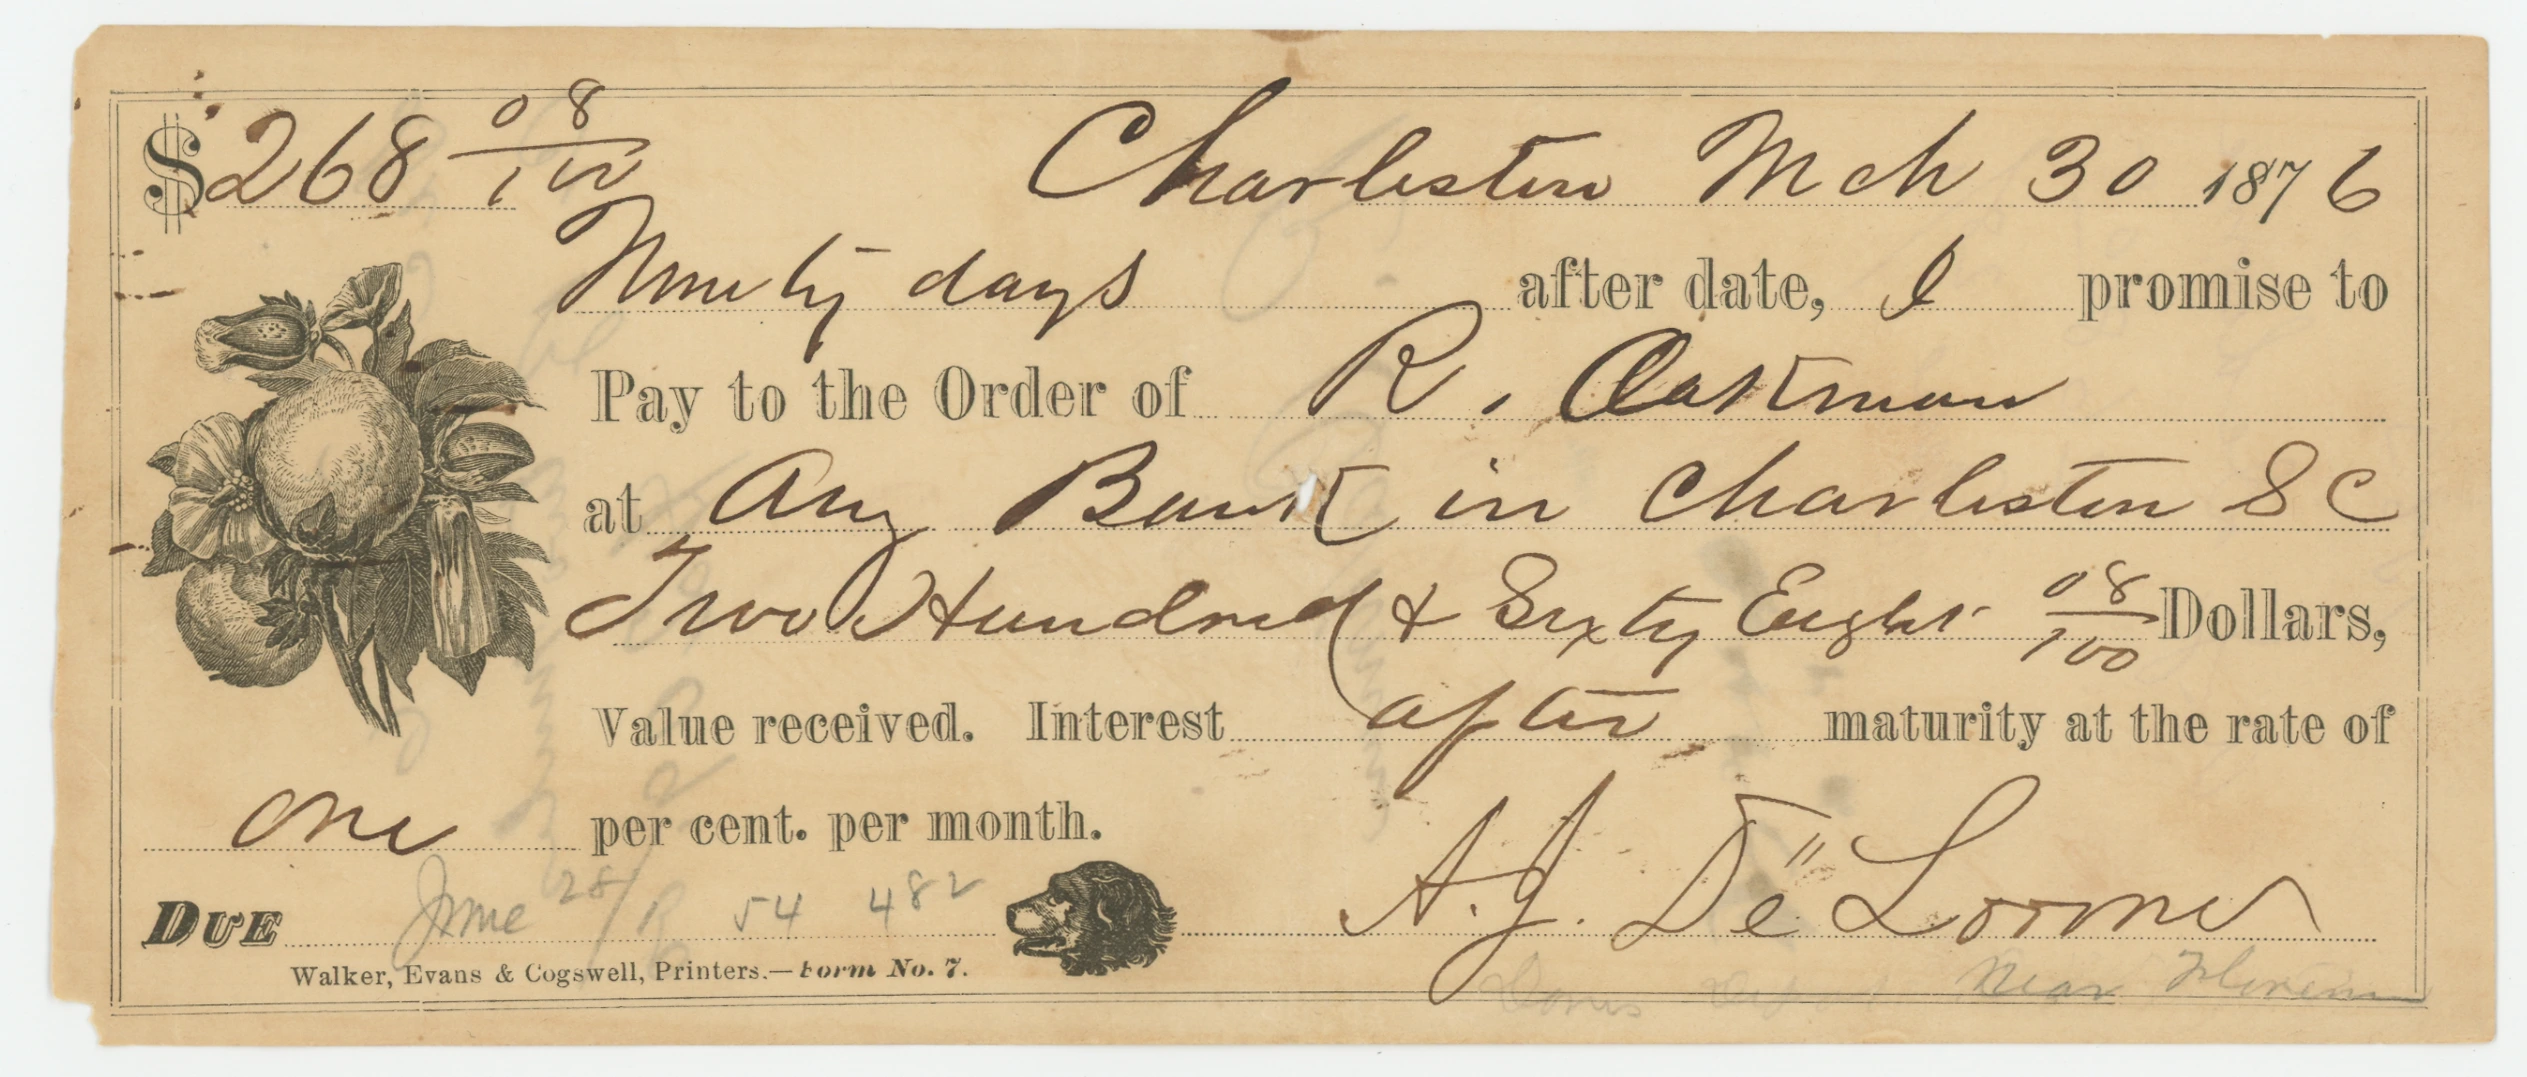 $268 08/100 Charleston Mch 30 1876
Ninety days after date, I promise to
Pay to the Order of R. Oakman
at Any Bank in Charleston S C
Two Hundred & Sixty Eight 08/100 Dollars,
Value received. Interest after maturity at the rate of
one per cent. per month.
DUE June 28/ 54 482 A. J. De" Loomer
Walker, Evans & Cogswell, Printers.—Form No. 7.
Near